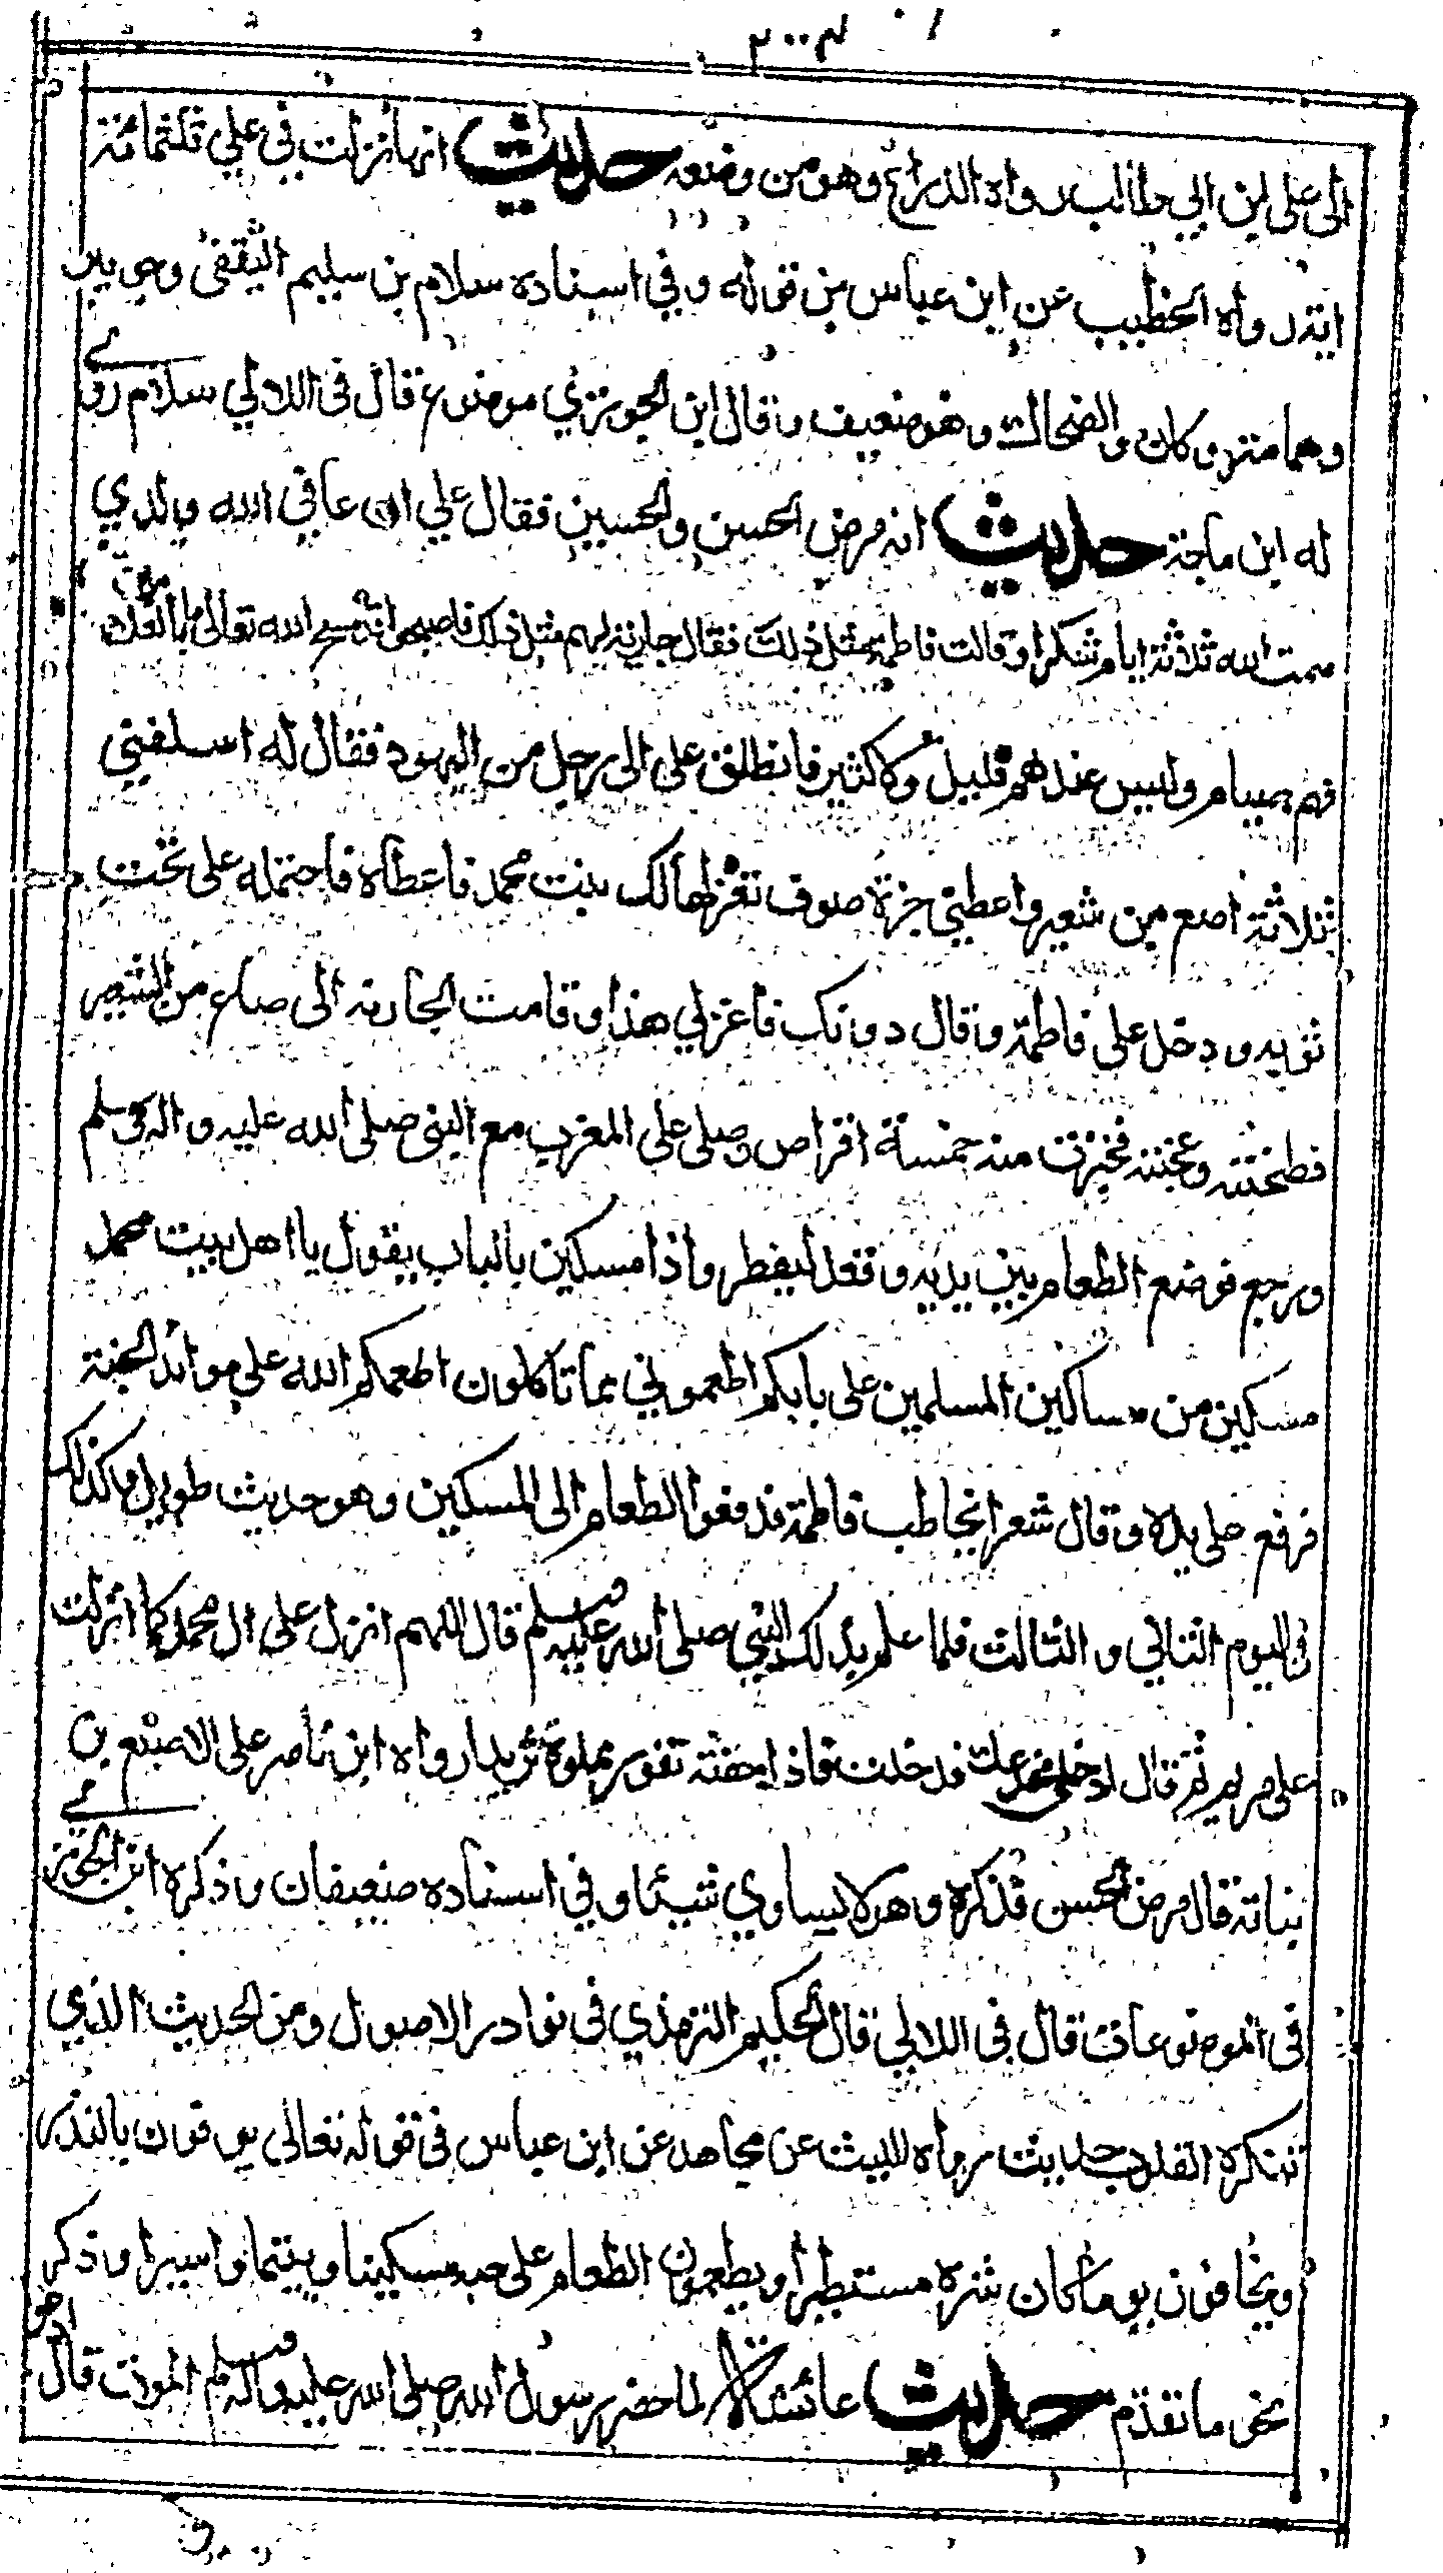 ٢٠٠٣
الى على بن ابي طالب رواه الذراع وهو من وضعه حديث انها نزلت في علي ثلثمائة
اية رواه الخطيب عن ابن عباس من قوله وفي اسناده سلام بن سليم الثقفى وجويبر
وهما متروكان والضحاك وهو ضعيف وقال ابن الجوزي موضوع قال فى اللالي سلام روى
له ابن ماجة حديث انه مرض الحسن والحسين فقال علي ان عافى الله ولدي
صمت لله ثلاثة ايام شكرا وقالت فاطمة مثل ذلك فقال جارية لهم مثل ذلك فاصبحوا قد مسح الله تعالى ما بالغلامين
فهم صيام وليس عندهم قليل ولا كثير فانطلق على الى رجل من اليهود فقال له اسلفني
ثلاثة اصع من شعير واعطني جزة صوف تغزلها لك بنت محمد فاعطاه فاحتمله على تحت
ثوبه ودخل على فاطمة وقال دونك فاغزلي هذا وقامت الجارية الى صاع من الشعير
فطحنته وعجنته فخبزت منه خمسة اقراص وصلى على المغرب مع النبي صلى الله عليه واله وسلم
ورجع فوضع الطعام بين يديه وقعد ليفطر واذا مسكين بالباب يقول يا اهل بيت محمد
مسكين من مساكين المسلمين على بابكم اطعموني مما تاكلون اطعمكم الله على موائد الجنة
فرفع على يده وقال شعرا يخاطب فاطمة فدفعوا الطعام الى المسكين وهو حديث طويل وكذلك
فى اليوم الثاني والثالث فلما علم بذلك النبي صلى الله عليه وسلم قال اللهم انزل على ال محمد كما انزلت
على مريم ثم قال ادخلى مخدعك فدخلت فاذا جفنة تفور مملوة ثريدا رواه ابن ناصر على الاصبغ بن
نباتة قال مرض الحسن فذكره وهو لا يساوي شيئا وفي اسناده ضعيفان وذكره ابن الجوزي
فى الموضوعات قال فى اللالي قال الحكيم الترمذي فى نوادر الاصول ومن الحديث الذي
تنكره القلوب حديث رواه الليث عن مجاهد عن ابن عباس فى قوله تعالى يوفون بالنذر
ويخافون يوما كان شره مستطيرا ويطعمون الطعام على حبه مسكينا ويتيما واسيرا وذكر
نحو ما تقدم حديث عائشة لما حضر رسول الله صلى الله عليه واله وسلم الموت قال ادعو